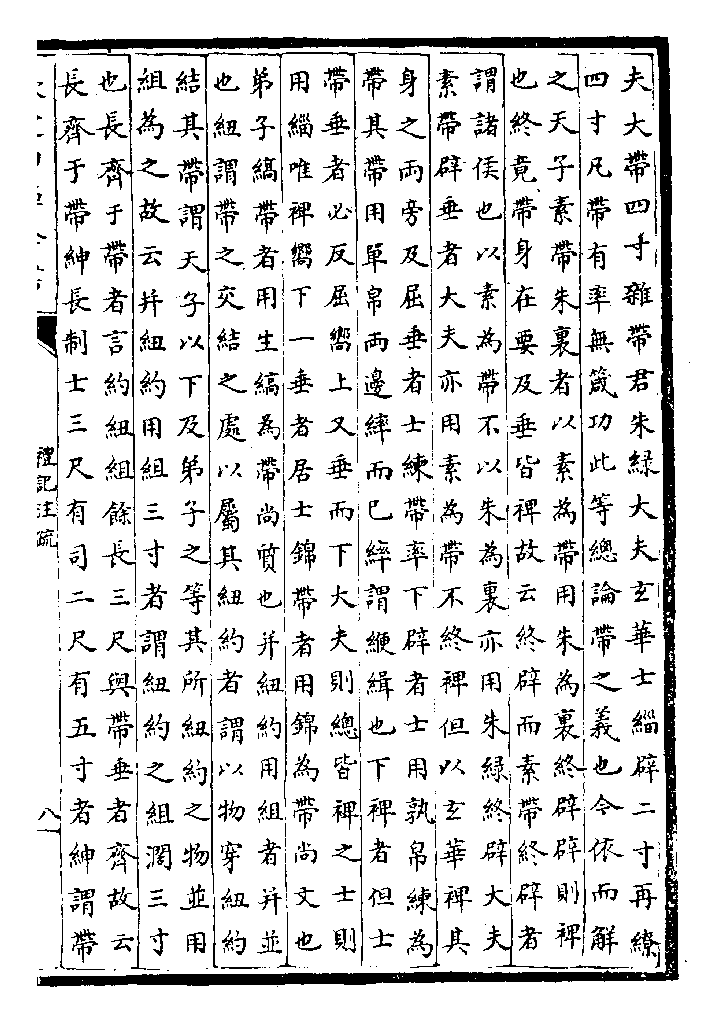 夫大帶四寸雜帶君朱綠大夫玄華士緇辟二寸再繚
四寸凡帶有率無箴功此等總論帶之義也今依而解
之天子素帶朱裏者以素為帶用朱為裏終辟辟則裨
也終竟帶身在要及垂皆裨故云終辟而素帶終辟者
謂諸侯也以素為帶不以朱為裏亦用朱綠終辟大夫
素帶辟垂者大夫亦用素為帶不終裨但以玄華裨其
身之兩旁及屈垂者士練帶率下辟者士用孰帛練為
帶其帶用單帛兩邊繂而已繂謂緶緝也下裨者但士
帶垂者必反屈嚮上又垂而下大夫則總皆裨之士則
用緇唯裨嚮下一垂者居士錦帶者用錦為帶尚文也
弟子縞帶者用生縞為帶尚質也并紐約用組者并並
也紐謂帶之交結之處以屬其紐約者謂以物穿紐約
結其帶謂天子以下及弟子之等其所紐約之物並用
組為之故云并紐約用組三寸者謂紐約之組濶三寸
也長齊于帶者言約紐組餘長三尺與帶垂者齊故云
長齊于帶紳長制士三尺有司二尺有五寸者紳謂帶
禮記注疏
八